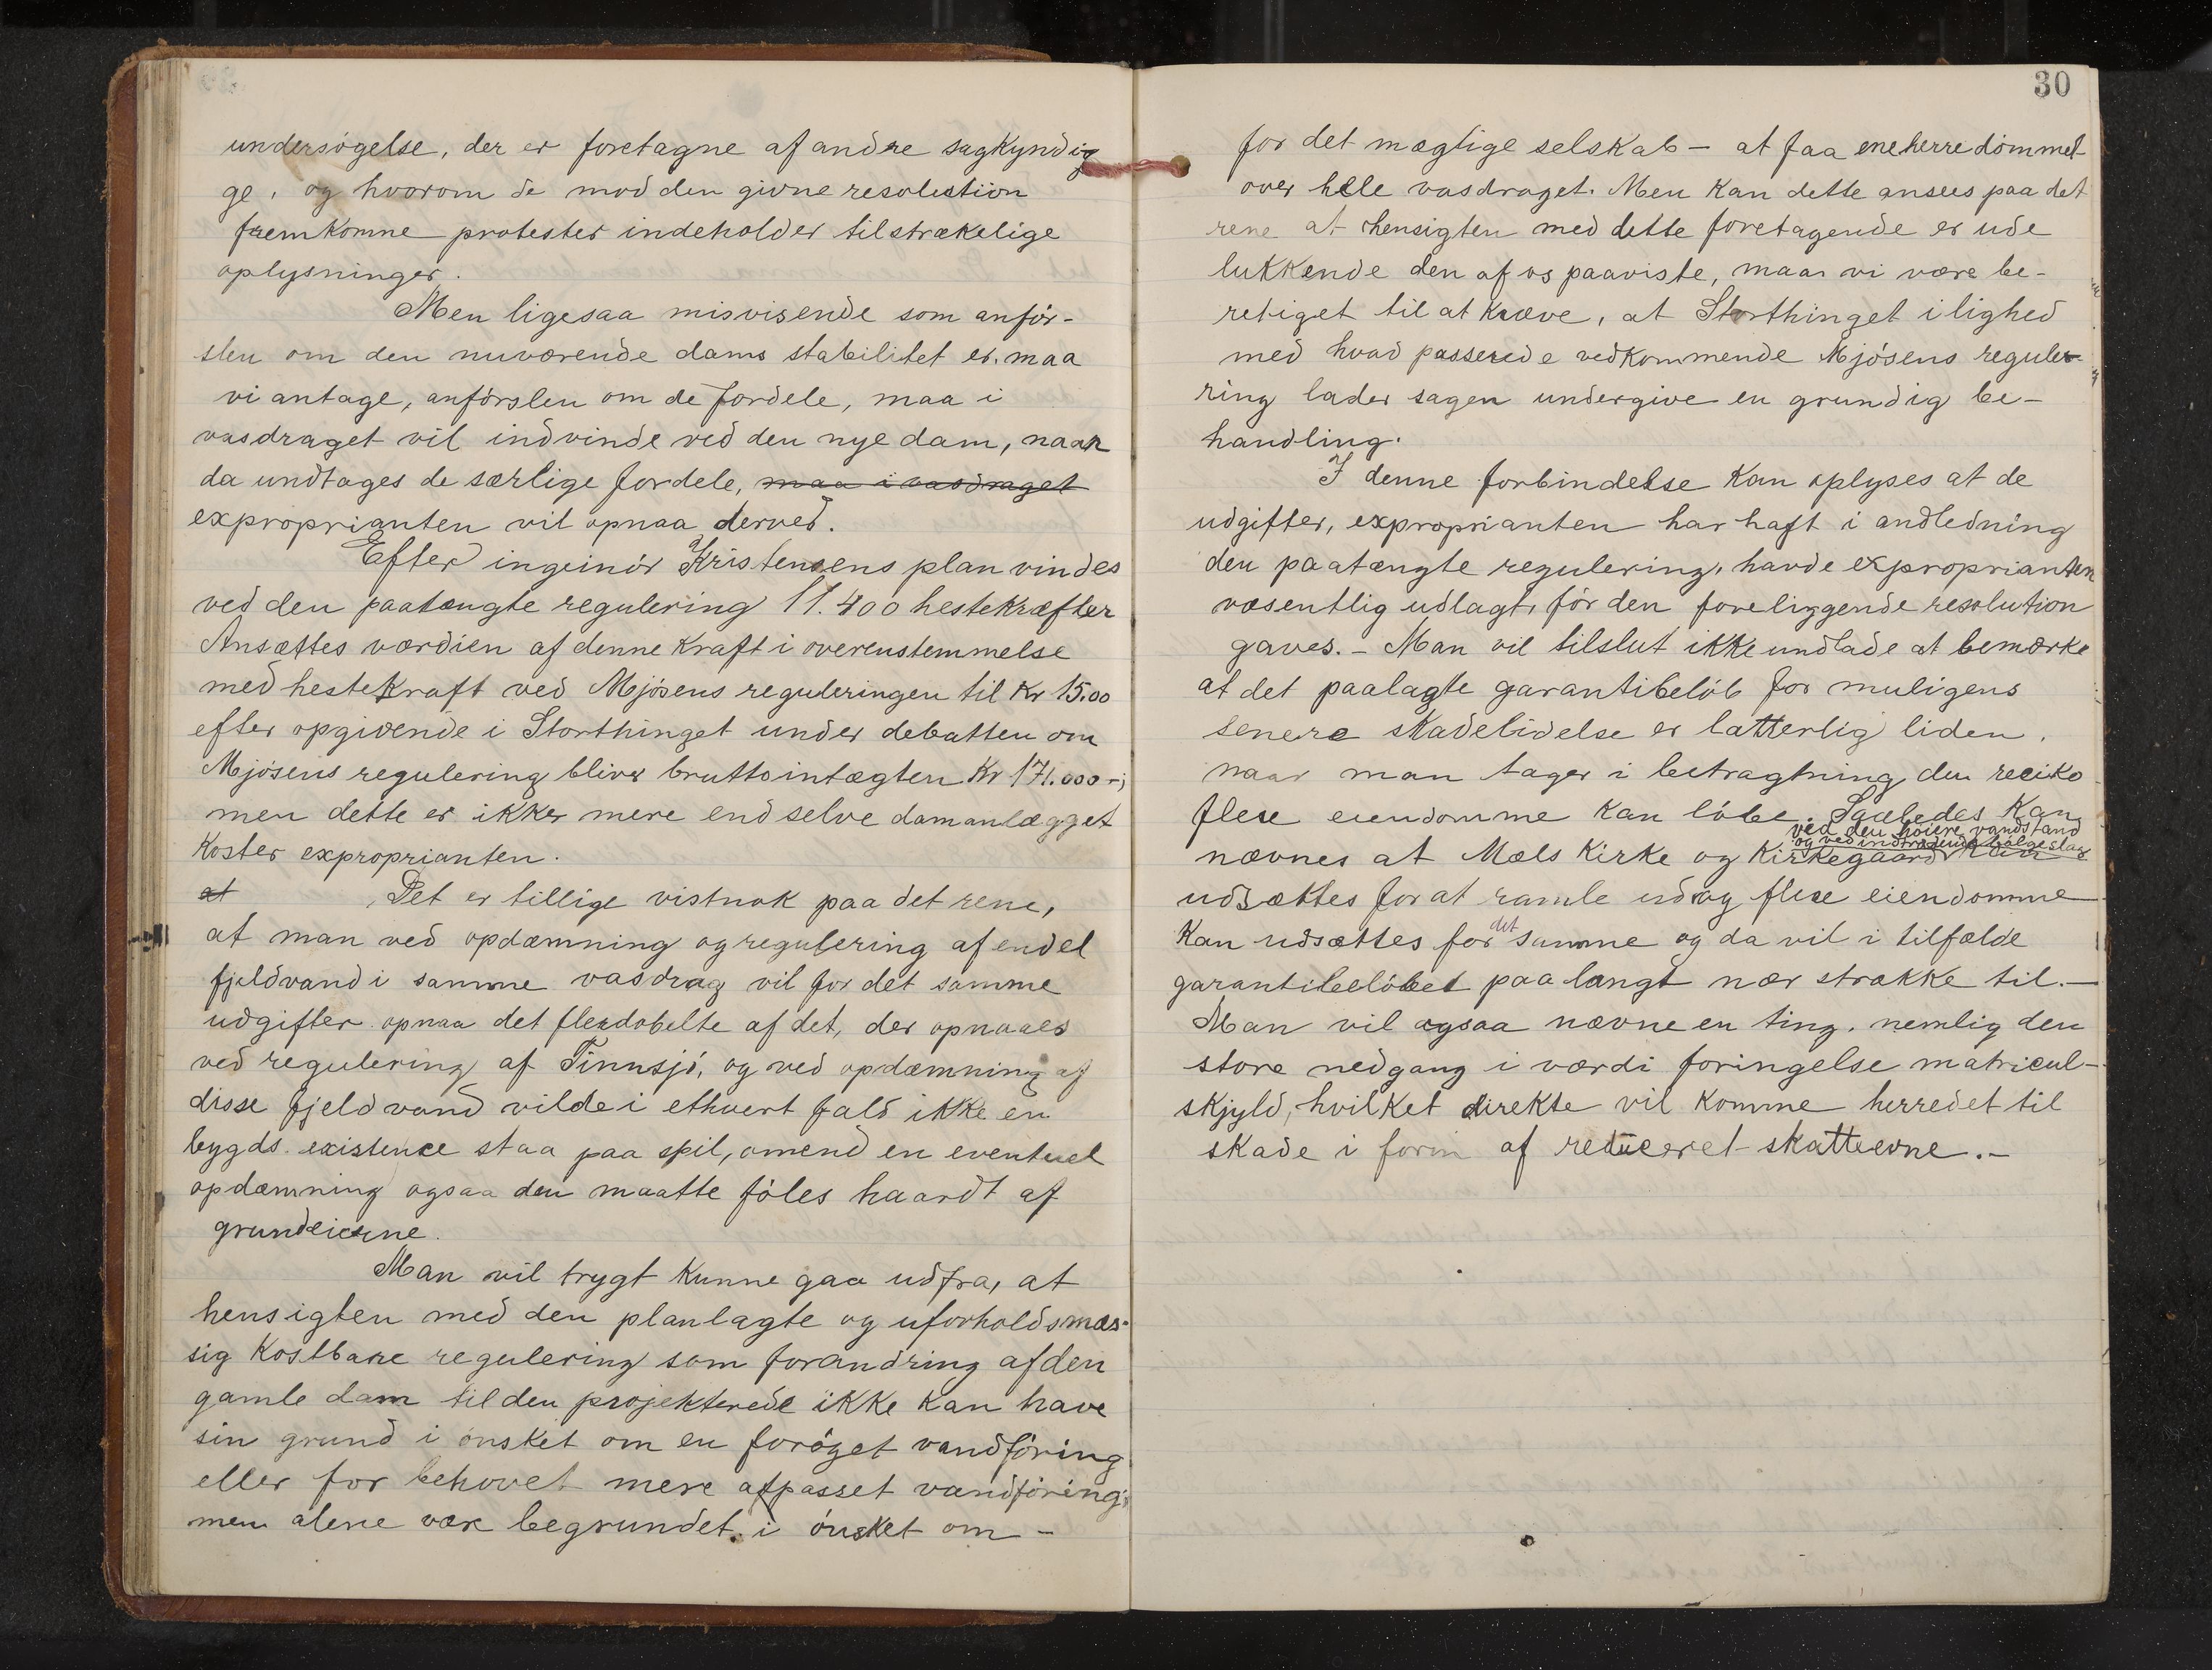 undersøgelse, der er foretagne af andre sagkyndig
ge, og hvorom de mod den givne resolution
fremkomne protester indeholder tilstrækelige
oplysninger.
Men ligesaa misvisende som anfør-
slen om den nuværende dams stabilitet er, maa
vi antage, anførslen om de fordele, maa i
vasdraget vil indvinde ved den nye dam, naar
da undtages de særlige fordele, maa i vasdraget
exproprianten vil opnaa derved.
Efter ingeinør Kristensens plan vindes
ved den paatængte regulering 11.400 hestekræfter
Ansættes værdien af denne kraft i overenstemmelse
med hestekraft ved Mjøsens reguleringen til Kr 15.00
efter opgivende i Storthinget under debatten om
Mjøsens regulering bliver bruttointægten Kr 171.000-;
men dette er ikke mere end selve damanlægget
koster exproprianten.
at Det er tillige vistnok paa det rene,
at man ved opdæmning og regulering af endel
fjeldvand i samme vasdrag vil for det samme
udgifter opnaa det flerdobelte af det, der opnaaes
ved regulering af Tinnsjø, og ved opdæmning af
disse fjeldvand vilde i ethvert fald ikke en
bygds existence staa paa spil, omend en eventuel
opdæmning ogsaa den maatte føles haardt af
grundeierne.
Man vil trygt kunne gaa udfra, at
hensigten med den planlagte og uforholdsmæs-
sig kostbare regulering som forandring af den
gamle dam til den projekterede ikke kan have
sin grund i ønsket om en forøget vandføring
eller for behovet mere afpasset vandføring,
men alene være begrundet i ønsket om -
30
for det mægtige selskab - at faa eneherredømmet
over hele vasdraget. Men kan dette ansees paa det
rene at hensigten med dette foretagende er ude
lukkende den af os paaviste, maa vi være be-
retiget til at kræve, at Storthinget i lighed
med hvad passerede vedkommende Mjøsens regule-
ring lader sagen undergive en grundig be-
handling.
I denne forbindelse kan oplyses at de
udgifter, exproprianten har haft i andledning
den paatængte regulering, havde exproprianten
væsentlig udlagt, før den foreliggende resolution
gaves. - Man vil tilslut ikke undlade at bemærke
at det paalagte garantibeløb for muligens
senere skadelidelse er latterlig liden,
naar man tager i betragtning den reciko
flere eiendomme kan løbe. Saaledes kan
ved den høiere vandstand
og ved indtrædende bølgeslag
nævnes at Mæls Kirke og Kirkegaard
udsættes for at ramle ud og flere eiendomme
kan udsættes for det samme og da vil i tilfælde
garantibeløbet paa langt nær strække til. -
Man vil ogsaa nævne en ting, nemlig den
store nedgang i værdi foringelse matricul-
skjyld, hvilket direkte vil komme herredet til
skade i form af reduceret skatteevne. -